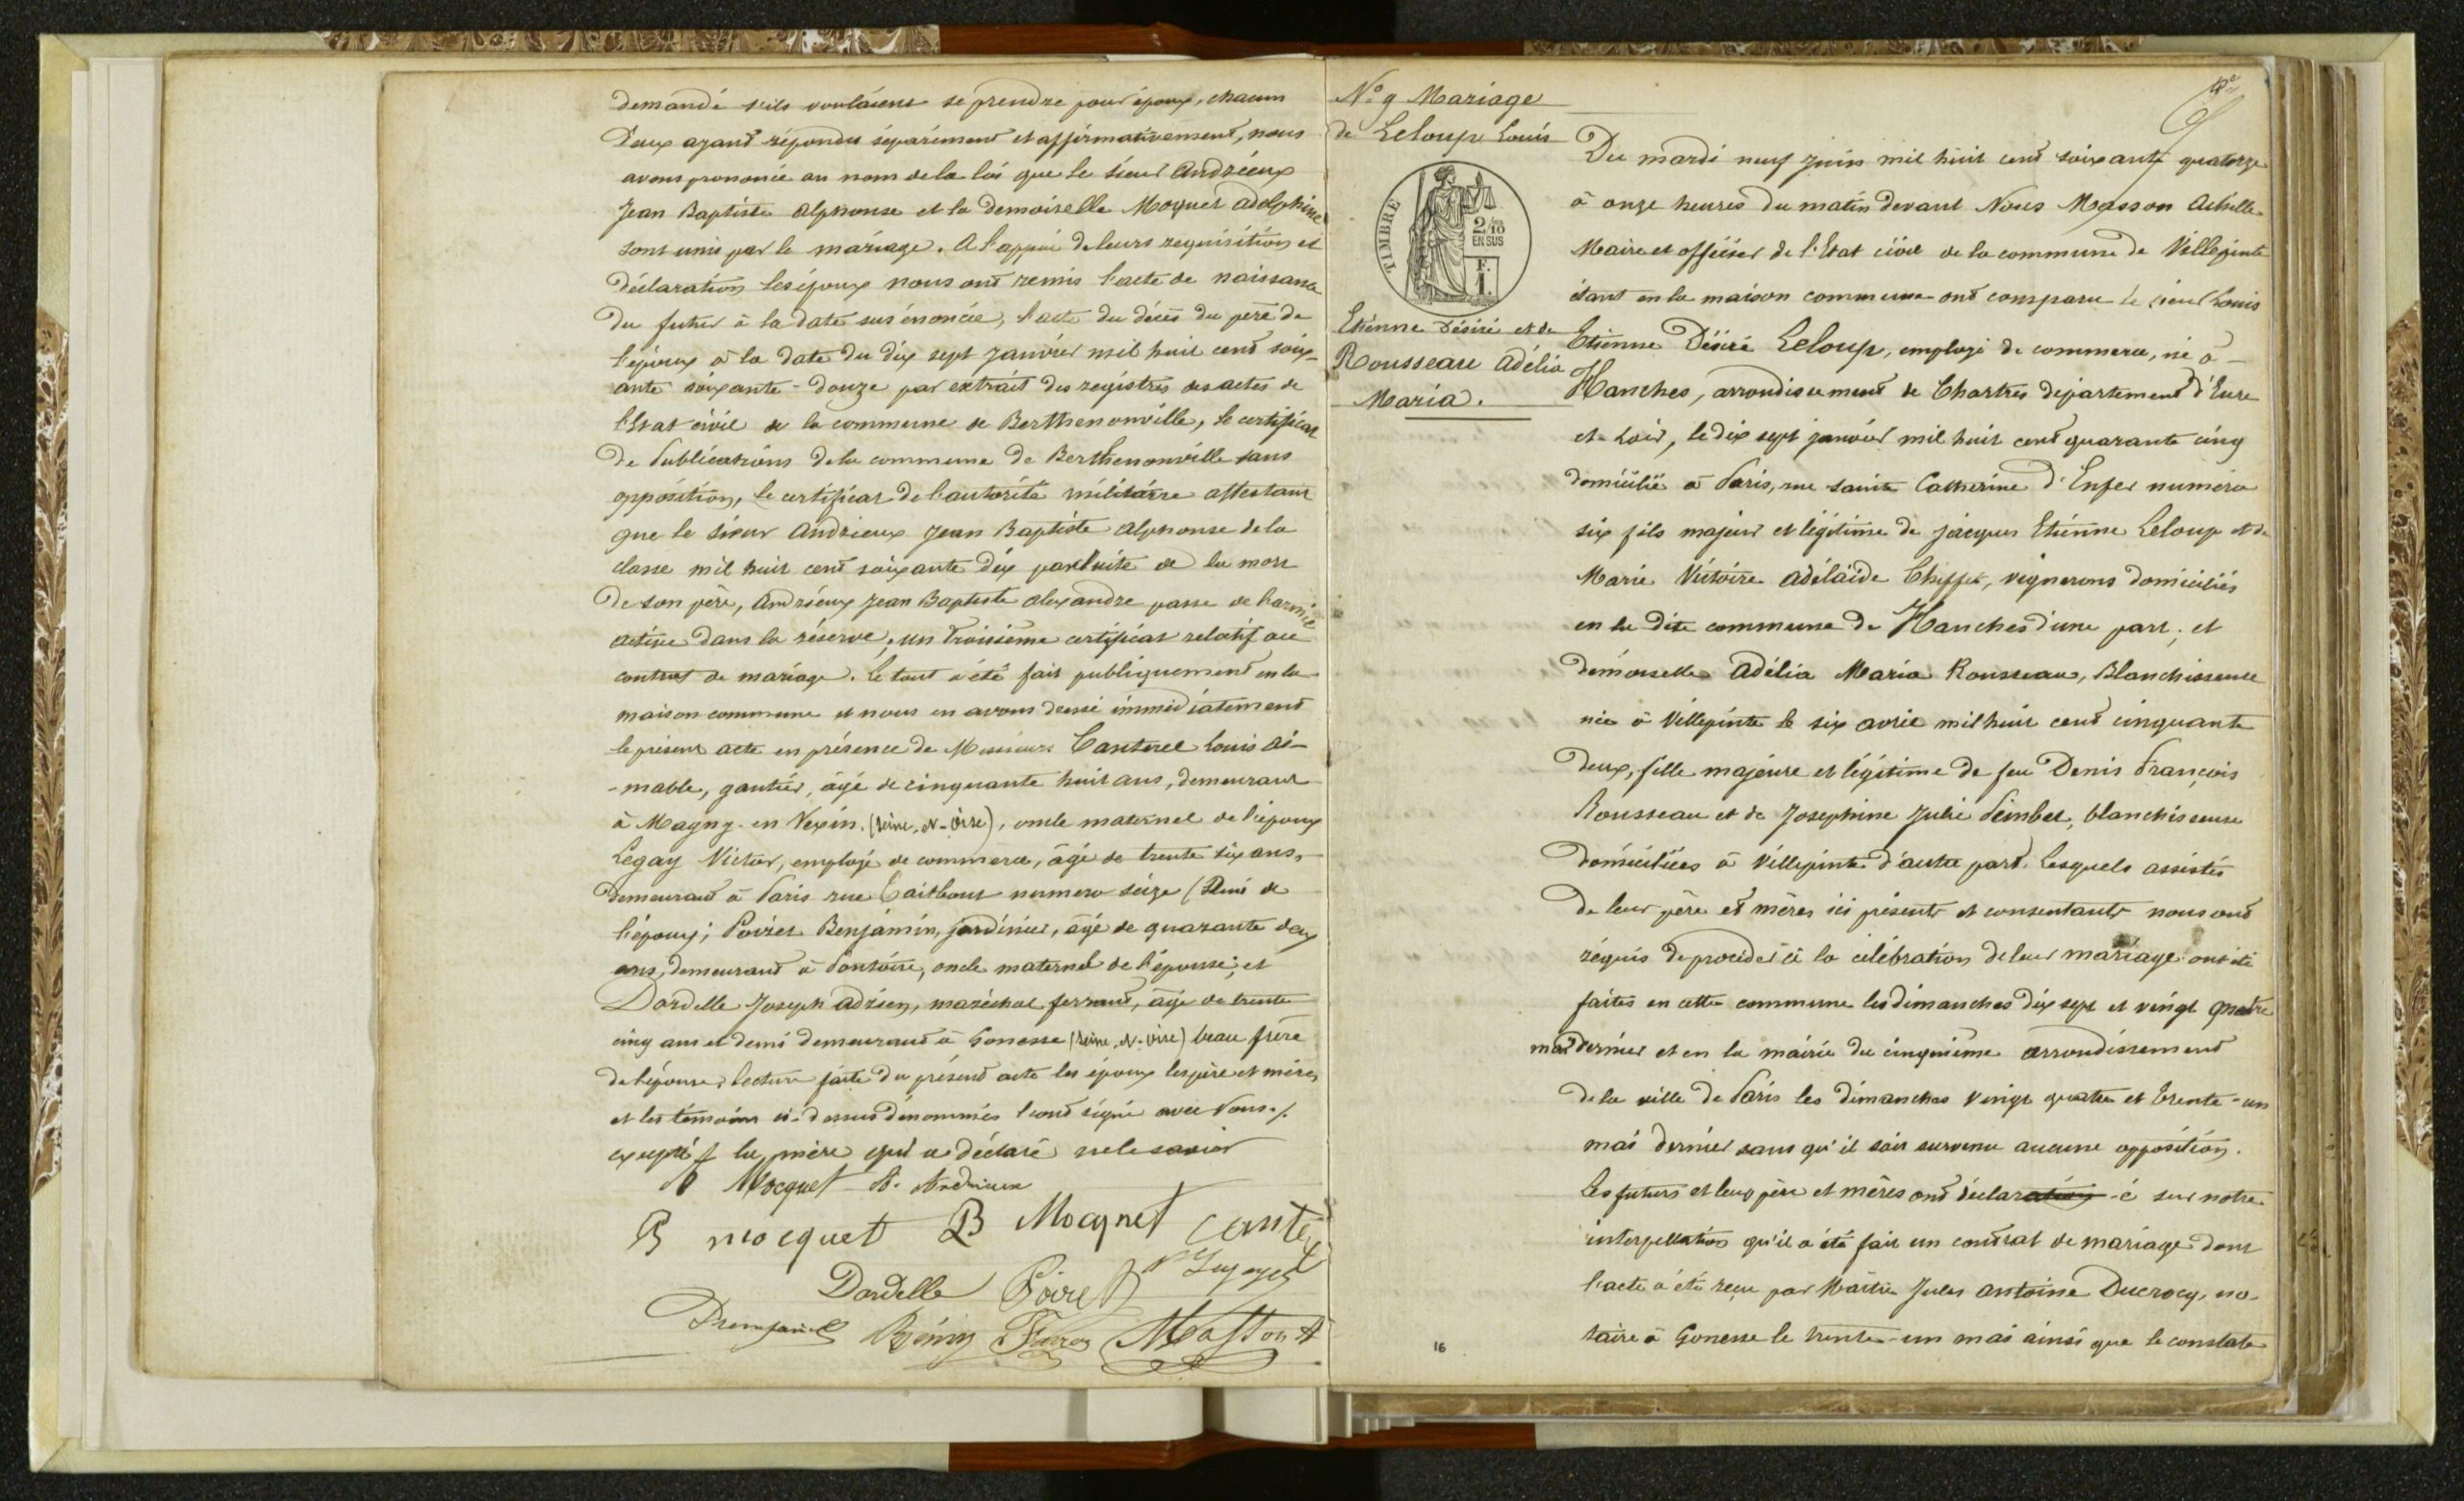 demandé s'ils voulaient se prendre pour époux, chacun
d'eux ayant répondu séparément et affirmativement, nous
avons prononcé au nom de la loi que le sieur Andrieux
Jean Baptiste Alphonse et la demoiselle Moquet Adolphine
sont unis par le mariage. A l'appui de leurs réquisition et
déclaration les époux nous ont remis l'acte de naissance
du futur à la date sus énoncée, l'acte du décès du père de
l'époux à la date du dix sept janvier mil huit cent soix-
ante soixante-douze par extrait des registres des actes de
l'Etat civil de la commune de Berthenonville, le certificat
de Publications de la commune de Berthenonville sans
opposition, le certificat de l'autorité militaire attestant
que le sieur Andrieux Jean Baptiste Alphonse de la
classe mil huit cent soixante dix par suite de la mort
de son père, Andrieux Jean Baptiste Alexandre passe de l'armée
active dans la réserve, un troisième certificat relatif au
contrat de mariage. Le tout a été fait publiquement en la
maison commune et nous en avons dressé immédiatement
le présent acte en présence de Messieurs Canterel Louis Ai-
-mable, gantier, âgé de cinquante huit ans, demeurant
à Magny-en Vexin. (Seine-et-Oise), oncle maternel de l'époux
Legay Victor, employé de commerce, âgé de trente six ans,
demeurant à Paris rue Taitbout numero seize (Ami de
l'époux; Poiret Benjamin, jardinier, âgé de quarante deux
ans, demeurant à Pontoise, oncle maternel de l'épouse; et
Dardelle Joseph Adrien, maréchal ferrant, âgé de trente
cinq ans et demi demeurant à Gonesse (Seine-et-Oise) beau frère
de l'épouse. Lecture faite du présent acte les époux les père et mères
et les témoins ci-dessus dénommés l'ont signé avec Nous./.
excepté la mère qui a déclaré ne le savoir
A Mocquet A. Andrieux
B mocquet B Mocquet Canterel
Dardelle Poiret
Rémy Masson A
N° 9 Mariage
de Leloup Louis
TIMBRE
2/10
EN SUS
F.
1.
Etienne Désiré et de
Rousseau Adélia
Maria.
Du mardi neuf juin mil huit cent soixante quatorze
à onze heures du matin devant Nous Masson Achille
Maire et officier de l'Etat civil de la commune de Villepinte
étant en la maison commune ont comparu le sieur Louis
Etienne Désiré Leloup, employé de commerce, né à
Hanches, arrondissement de Chartres département d'Eure
et-Loir, le dix sept janvier mil huit cent quarante cinq
domicilié à Paris, rue Sainte Catherine d'Enfer numéro
six fils majeur et légitime de Jacques Etienne Leloup et de
Marie Victoire Adélaïde Chiffet, vignerons domiciliés
en la dite commune de Hanches d'une part; et
demoiselle Adélia Maria Rousseau, Blanchisseuse
née à Villepinte le six avril mil huit cent cinquante
deux, fille majeure et légitime de feu Denis François
Rousseau et de Josephine Julie Peimbet, blanchisseuse
domiciliées à Villepinte d'autre part. Lesquels assistés
de leur père et mères ici présents et consentants nous ont
réquis de procéder à la célébration de leur mariage ont été
faites en cette commune les dimanches dix sept et vingt quatre
mai dernier et en la mairie du cinquième arrondissement
de la ville de Paris les dimanches vingt quatre et trente-un
mai dernier sans qu'il soit survenu aucune opposition.
Les futurs et leurs père et mères ont déclaration-é sur notre
interpellation qu'il a été fait un contrat de mariage dont
l'acte a été reçu par Maître Jules Antoine Ducrocq, no-
taire à Gonesse le trente-un mai ainsi que le constate
16